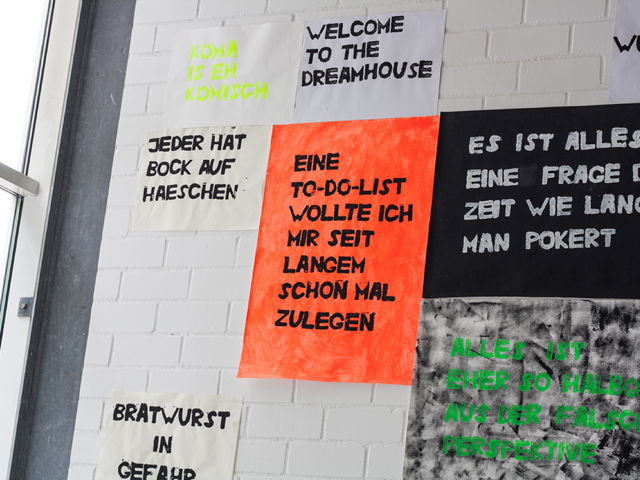 KOMA
IS EH
KOMISCH
WELCOME
TO THE
DREAMHOUSE
JEDER HAT
BOCK AUF
HAESCHEN
EINE
TO-DO-LIST
WOLLTE ICH
MIR SEIT
LANGEM
SCHON MAL
ZULEGEN
ES IST ALLES
EINE FRAGE
ZEIT WIE LANG
MAN POKERT
ALLES IST
EHER SO
AUS DER FALSCH
PERSPEKTIVE
BRATWURST
IN
GEFAHR